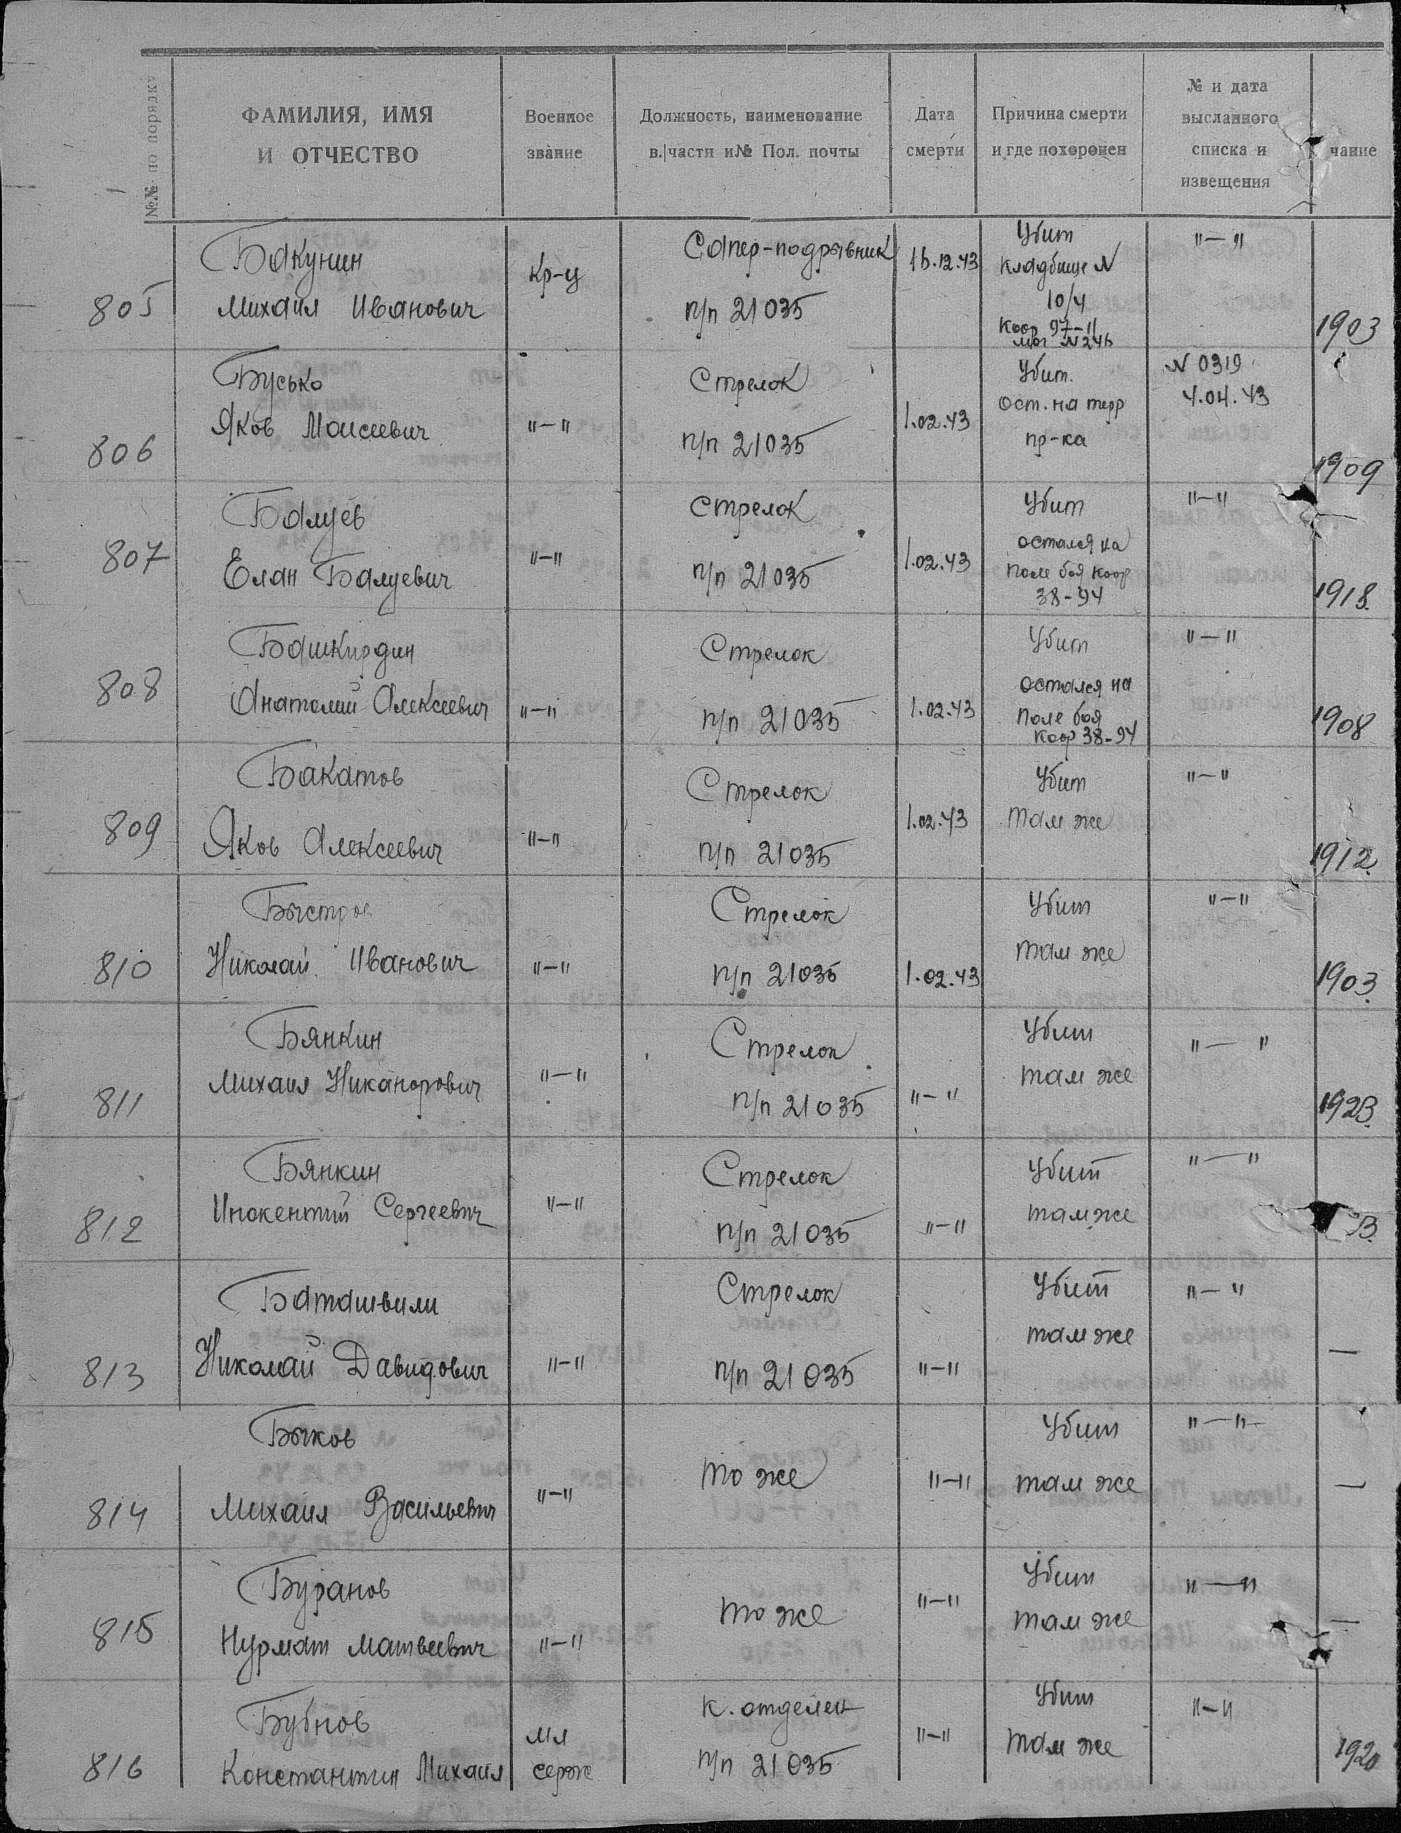 №№ по порядку
ФАМИЛИЯ, ИМЯ
И ОТЧЕСТВО
Военное
звание
Должность, наименование
в. части и № Пол. почты
Дата
смерти
Причина смерти
и где похоронен
№ и дата
высланного
списка и
извещения
чание
805
Бакунин
Михаил Иванович
кр-ц
Сапер-подрывник
п/п 21035
16.12.43
Убит
кладбище N
10/4
Коор 97-11
мог N 246
"—"
1903
806
Бусько
Яков Моисеевич
"—"
Стрелок
п/п 21035
1.02.43
Убит.
Ост. на терр
пр-ка
N 0319
4.04.43
1909
807
Балуев
Елан Балуевич
"—"
Стрелок
п/п 21035
1.02.43
Убит
остался на
поле боя коор
38-94
"—"
1918.
808
Башкирдин
Анатолий Алексеевич
"—"
Стрелок
п/п 21035
1.02.43
Убит
остался на
поле боя
коор 38-94
"—"
1908
809
Бакатов
Яков Алексеевич
"—"
Стрелок
п/п 21035
1.02.43
Убит
там же
"—"
1912.
810
Быстров
Николай Иванович
"—"
Стрелок
п/п 21035
1.02.43
Убит
там же
"—"
1903.
811
Бянкин
Михаил Никанорович
"—"
Стрелок
п/п 21035
"—"
Убит
там же
"—"
1923.
812
Бянкин
Инокентий Сергеевич
"—"
Стрелок
п/п 21035
"—"
Убит
там же
"—"
813
Баташвили
Николай Давидович
"—"
Стрелок
п/п 21035
"—"
Убит
там же
"—"
—
814
Быков
Михаил Васильевич
"—"
то же
"—"
Убит
там же
"—"
—
815
Буранов
Нурмат Матвеевич
"—"
то же
"—"
Убит
там же
"—"
—
816
Бубнов
Константин Михаил
мл
серж
к. отделен
п/п 21035
"—"
Убит
там же
"—"
1920